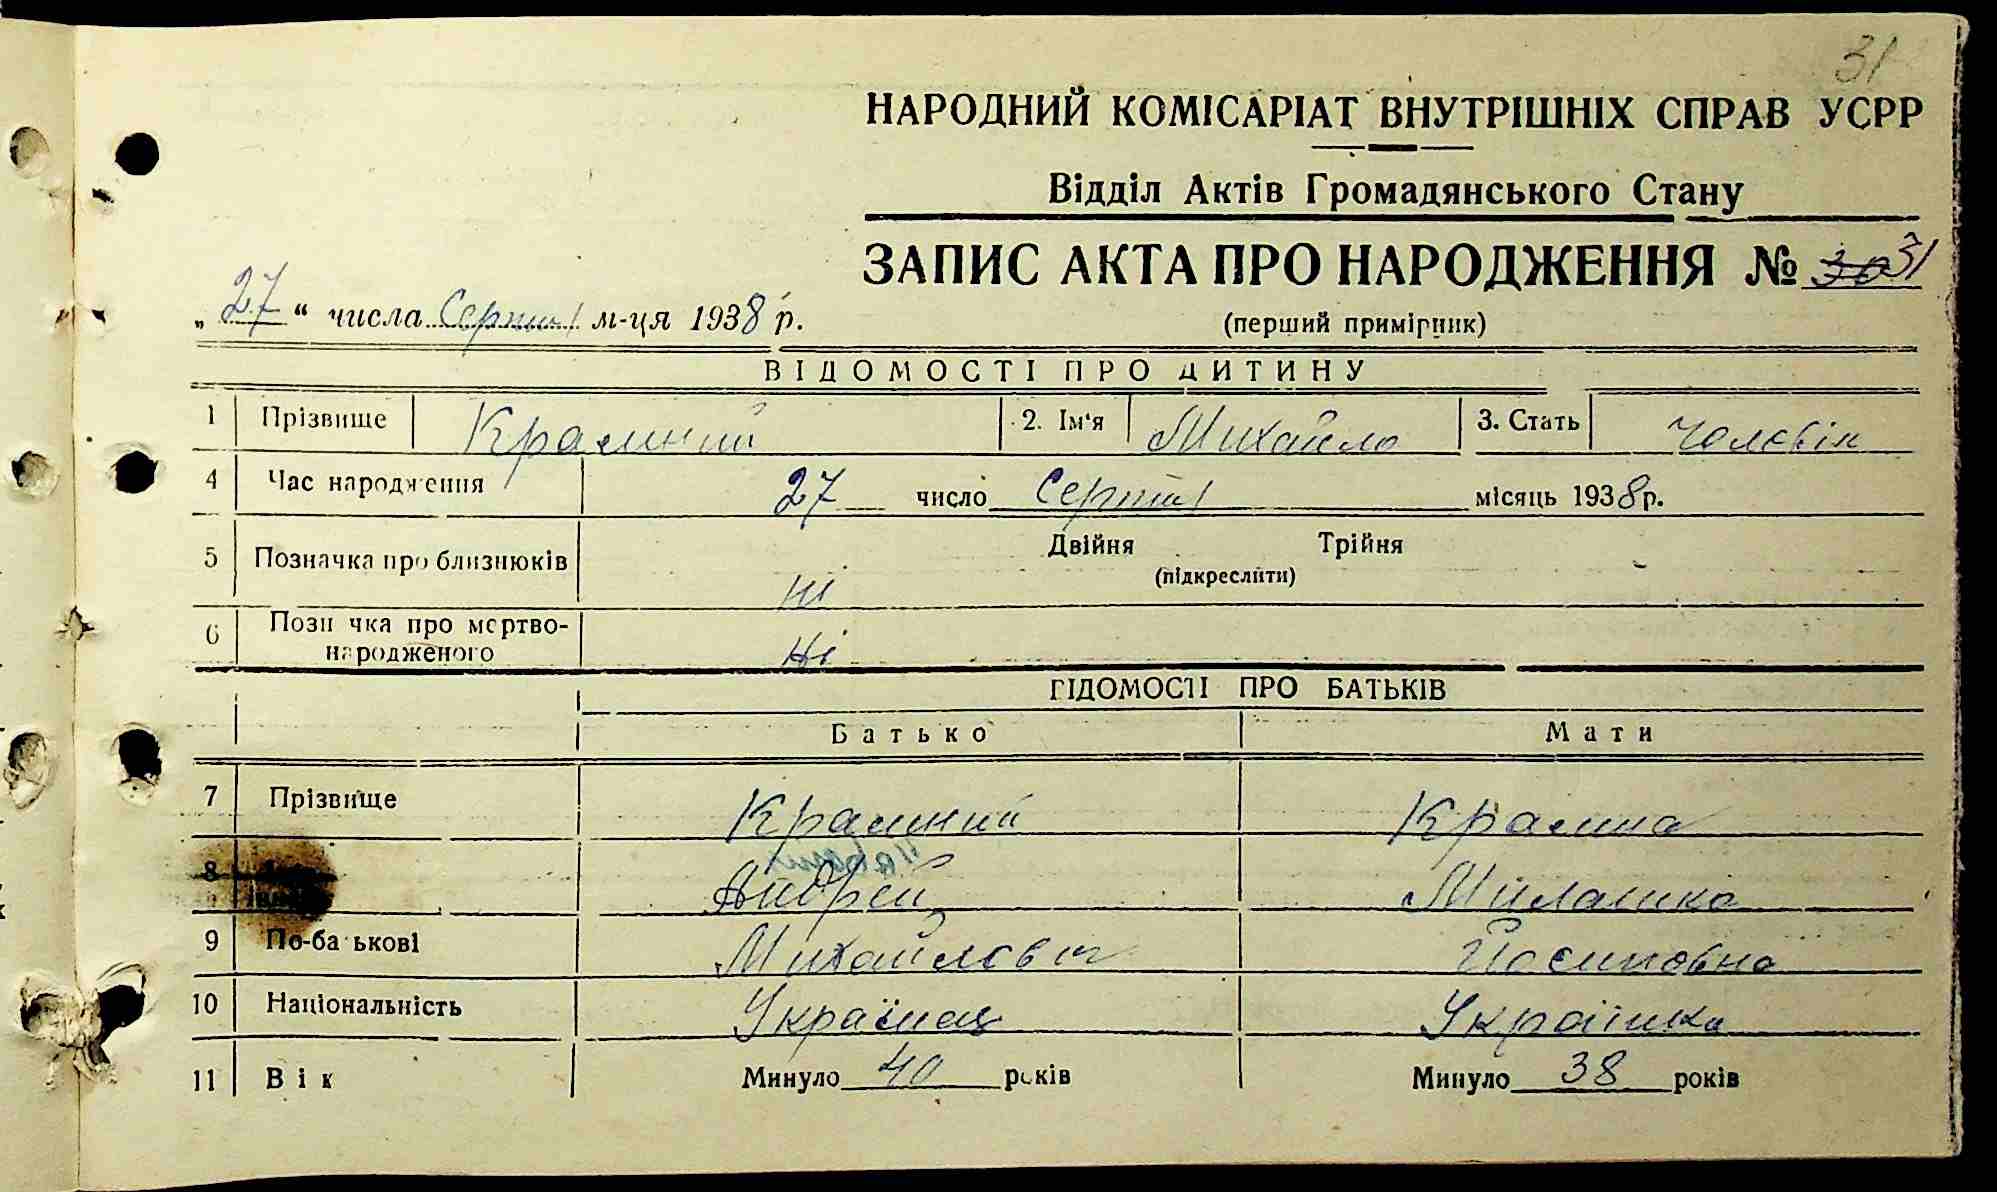 31
НАРОДНИЙ КОМІСАРІАТ ВНУТРІШНІХ СПРАВ УСРР
Відділ Актів Громадянського Стану
ЗАПИС АКТА ПРО НАРОДЖЕННЯ № 30 31
(перший примірник)
„27“ числа Серпня м-ця 1938 р.
ВІДОМОСТІ ПРО ДИТИНУ
1 Прізвище 2. Ім'я Михайло 3. Стать Чоловік
4 Час народження 27 число Серпня місяць 1938 р.
5 Позначка про близнюків Ні Двійня Трійня
(підкреслити)
6 Позначка про мертво-
народженого Ні
ВІДОМОСТІ ПРО БАТЬКІВ
Батько Мати
7 Прізвище
8 Андрей
9 По-батькові Михайлович Йосиповна
10 Національність Українец Українка
11 Вік Минуло 40 років Минуло 38 років